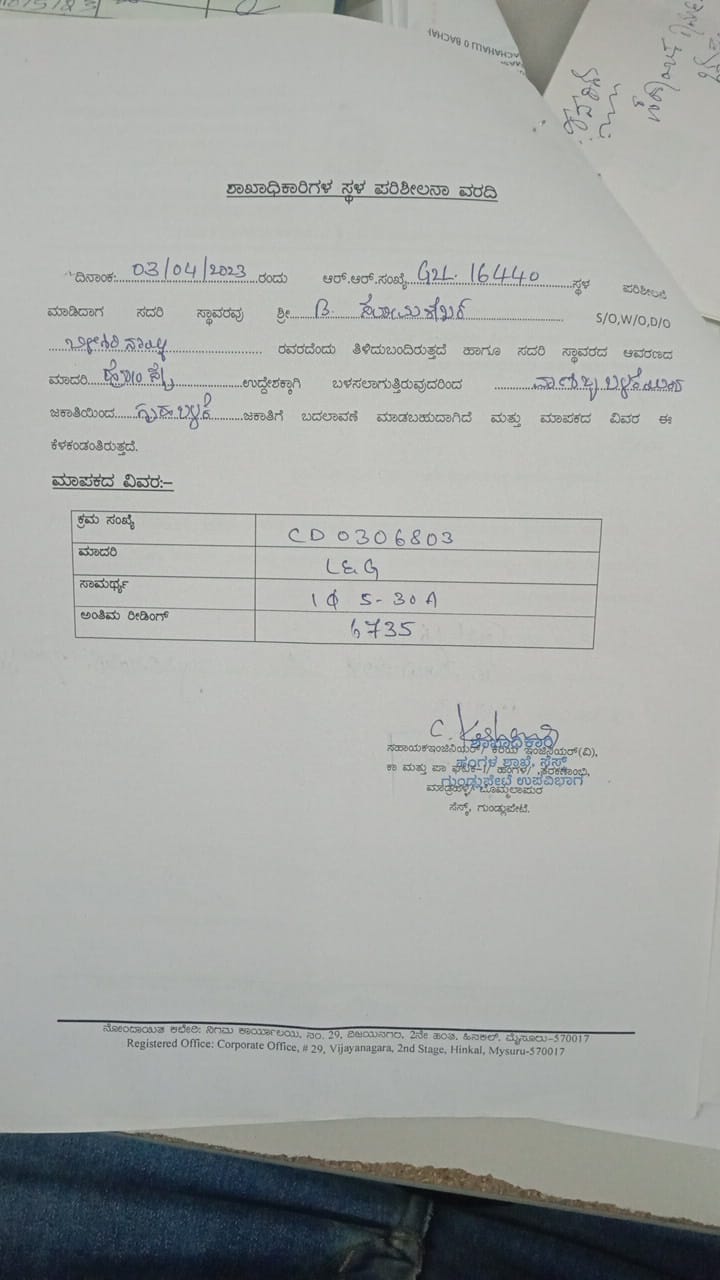 ACHAHALLI 0 BACHAH
ಶಾಖಾಧಿಕಾರಿಗಳ ಸ್ಥಳ ಪರಿಶೀಲನಾ ವರದಿ
ದಿನಾಂಕ: 03/04/2023 ರಂದು ಆರ್.ಆರ್.ಸಂಖ್ಯೆ G2L 16440 ಸ್ಥಳ ಪರಿಶೀಲನೆ
ಮಾಡಿದಾಗ ಸದರಿ ಸ್ಥಾವರವು ಶ್ರೀ B. S/O,W/O,D/O
ರವರದೆಂದು ತಿಳಿದುಬಂದಿರುತ್ತದೆ ಹಾಗೂ ಸದರಿ ಸ್ಥಾವರದ ಆವರಣದ
ಮಾದರಿ ಉದ್ದೇಶಕ್ಕಾಗಿ ಬಳಸಲಾಗುತ್ತಿರುವುದರಿಂದ
ಜಕಾತಿಯಿಂದ ಗೃಹಬಳಕೆ ಜಕಾತಿಗೆ ಬದಲಾವಣೆ ಮಾಡಬಹುದಾಗಿದೆ ಮತ್ತು ಮಾಪಕದ ವಿವರ ಈ
ಕೆಳಕಂಡಂತಿರುತ್ತದೆ.
ಮಾಪಕದ ವಿವರ:–
ಕ್ರಮ ಸಂಖ್ಯೆ CD 0306803
ಮಾದರಿ L&G
ಸಾಮರ್ಥ್ಯ 1Φ 5-30A
ಅಂತಿಮ ರೀಡಿಂಗ್ 6735
ಶಾಖಾಧಿಕಾರಿ
ಸಹಾಯಕಇಂಜಿನಿಯರ್/ ಕಿರಿಯ ಇಂಜಿನಿಯರ್(ವಿ),
ಹಂಗಳ ಶಾಖೆ, ಸೆಸ್ಕ್
ಕಾ ಮತ್ತು ಪಾ ಘಟಕ-1/ ಹಂಗಳ/ ತೆರಕಣಾಂಬಿ,
ಗುಂಡ್ಲುಪೇಟೆ ಉಪವಿಭಾಗ
ಬೊಮ್ಮಲಾಪುರ
ಸೆಸ್ಕ್, ಗುಂಡ್ಲುಪೇಟೆ.
ನೋಂದಾಯಿತ ಕಛೇರಿ: ನಿಗಮ ಕಾರ್ಯಾಲಯ, ನಂ. 29, ವಿಜಯನಗರ, 2ನೇ ಹಂತ, ಹಿನಕಲ್, ಮೈಸೂರು-570017
Registered Office: Corporate Office, # 29, Vijayanagara, 2nd Stage, Hinkal, Mysuru-570017